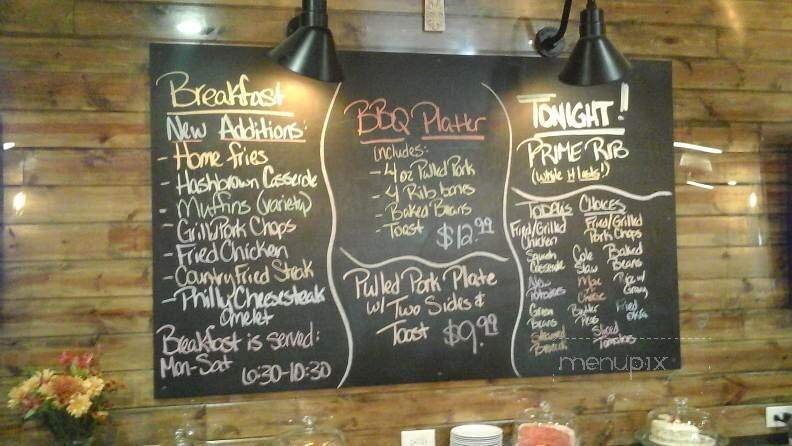 Breakfast
New Additions:
- Home fries
- Hashbrown Casserole
- Muffins (variety)
- Grilled Pork Chops
- Fried Chicken
- Country Fried Steak
- Philly Cheesesteak
Omelet
Breakfast is served:
Mon-Sat 6:30-10:30
BBQ Platter
includes:
- 4 oz Pulled Pork
- 4 Rib bones
- Baked Beans
- Toast $12.99
Pulled Pork Plate
w/ Two Sides &
Toast $9.99
TONIGHT!
PRIME RIB
(While it lasts!)
TODAYS CHOICES
Fried/Grilled
Chicken
Squash
Casserole
New
Potatoes
Green
Beans
Steamed
Broccoli
Cole
Slaw
Mac
n
Cheese
Butter
Peas
Fried/Grilled
Pork Chops
Baked
Beans
Rice w/
Gravy
Fried
Okra
Sliced
Tomatoes
menupix